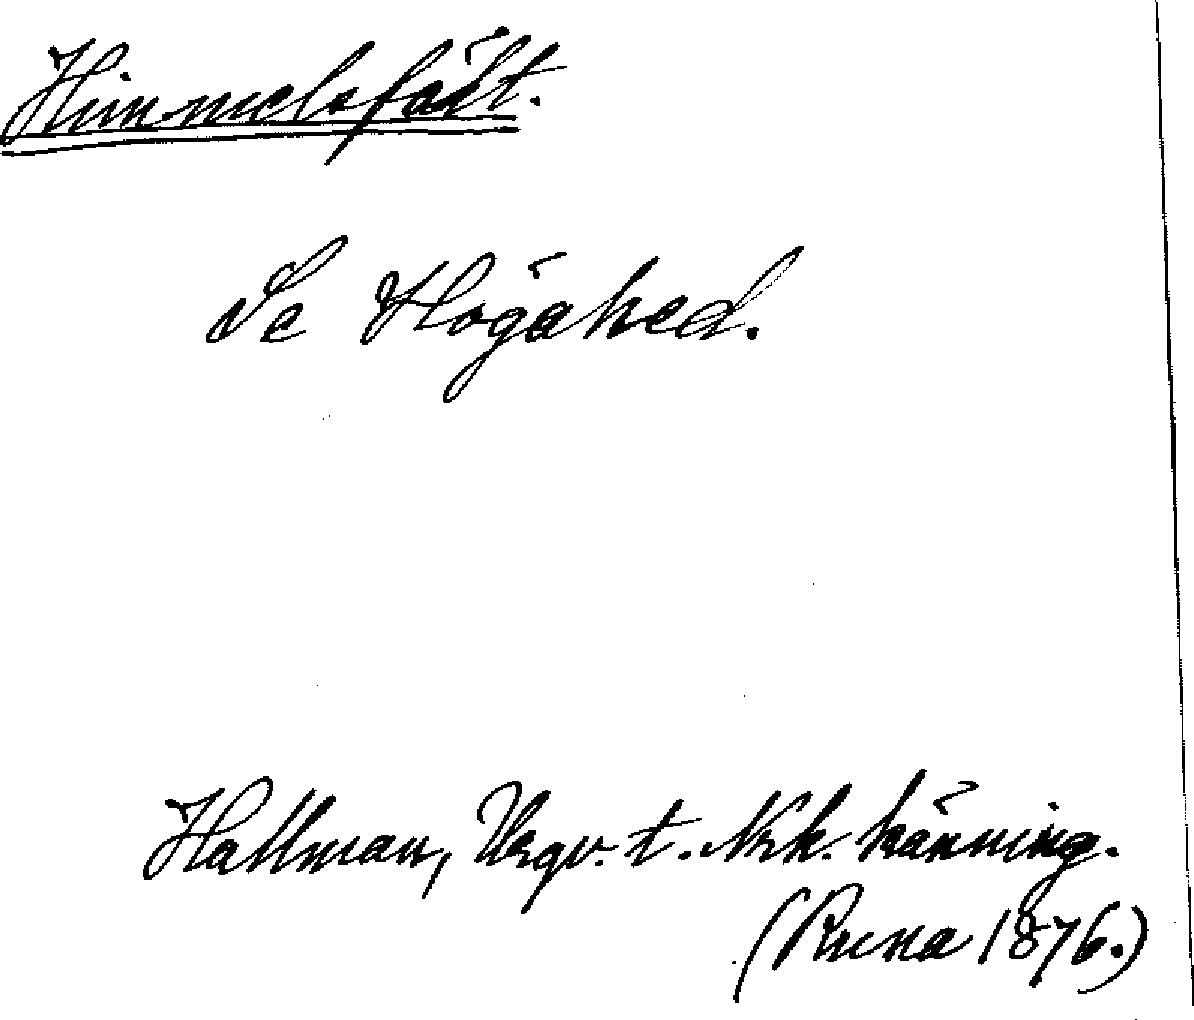 Himmelsfält.
Se Högahed.
Hallman, t. Nrk. känning.
(Runa 1876.)